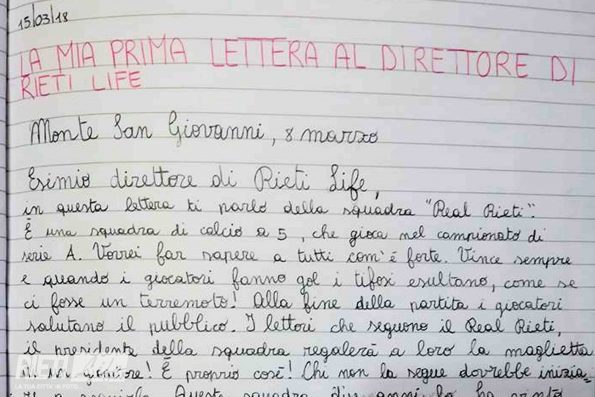 15/03/18
LA MIA PRIMA LETTERA AL DIRETTORE DI
RIETI LIFE
Monte San Giovanni, 8 marzo
Esimio direttore di Rieti Life,
in questa lettera ti parlo della squadra "Real Rieti".
È una squadra di calcio a 5, che gioca nel campionato di
serie A. Vorrei far sapere a tutti com'è forte. Vince sempre
e quando i giocatori fanno gol i tifosi esultano, come se
ci fosse un terremoto! Alla fine della partita i giocatori
salutano il pubblico. I lettori che seguono il Real Rieti,
il presidente della squadra regalerà a loro la maglietta
di un È proprio così! Chi non la segue dovrebbe inizia-
re a seguirla. Questa squadra due anni fa ha vinto
RIETI LIFE
LA TUA CITTÀ IN FOTO